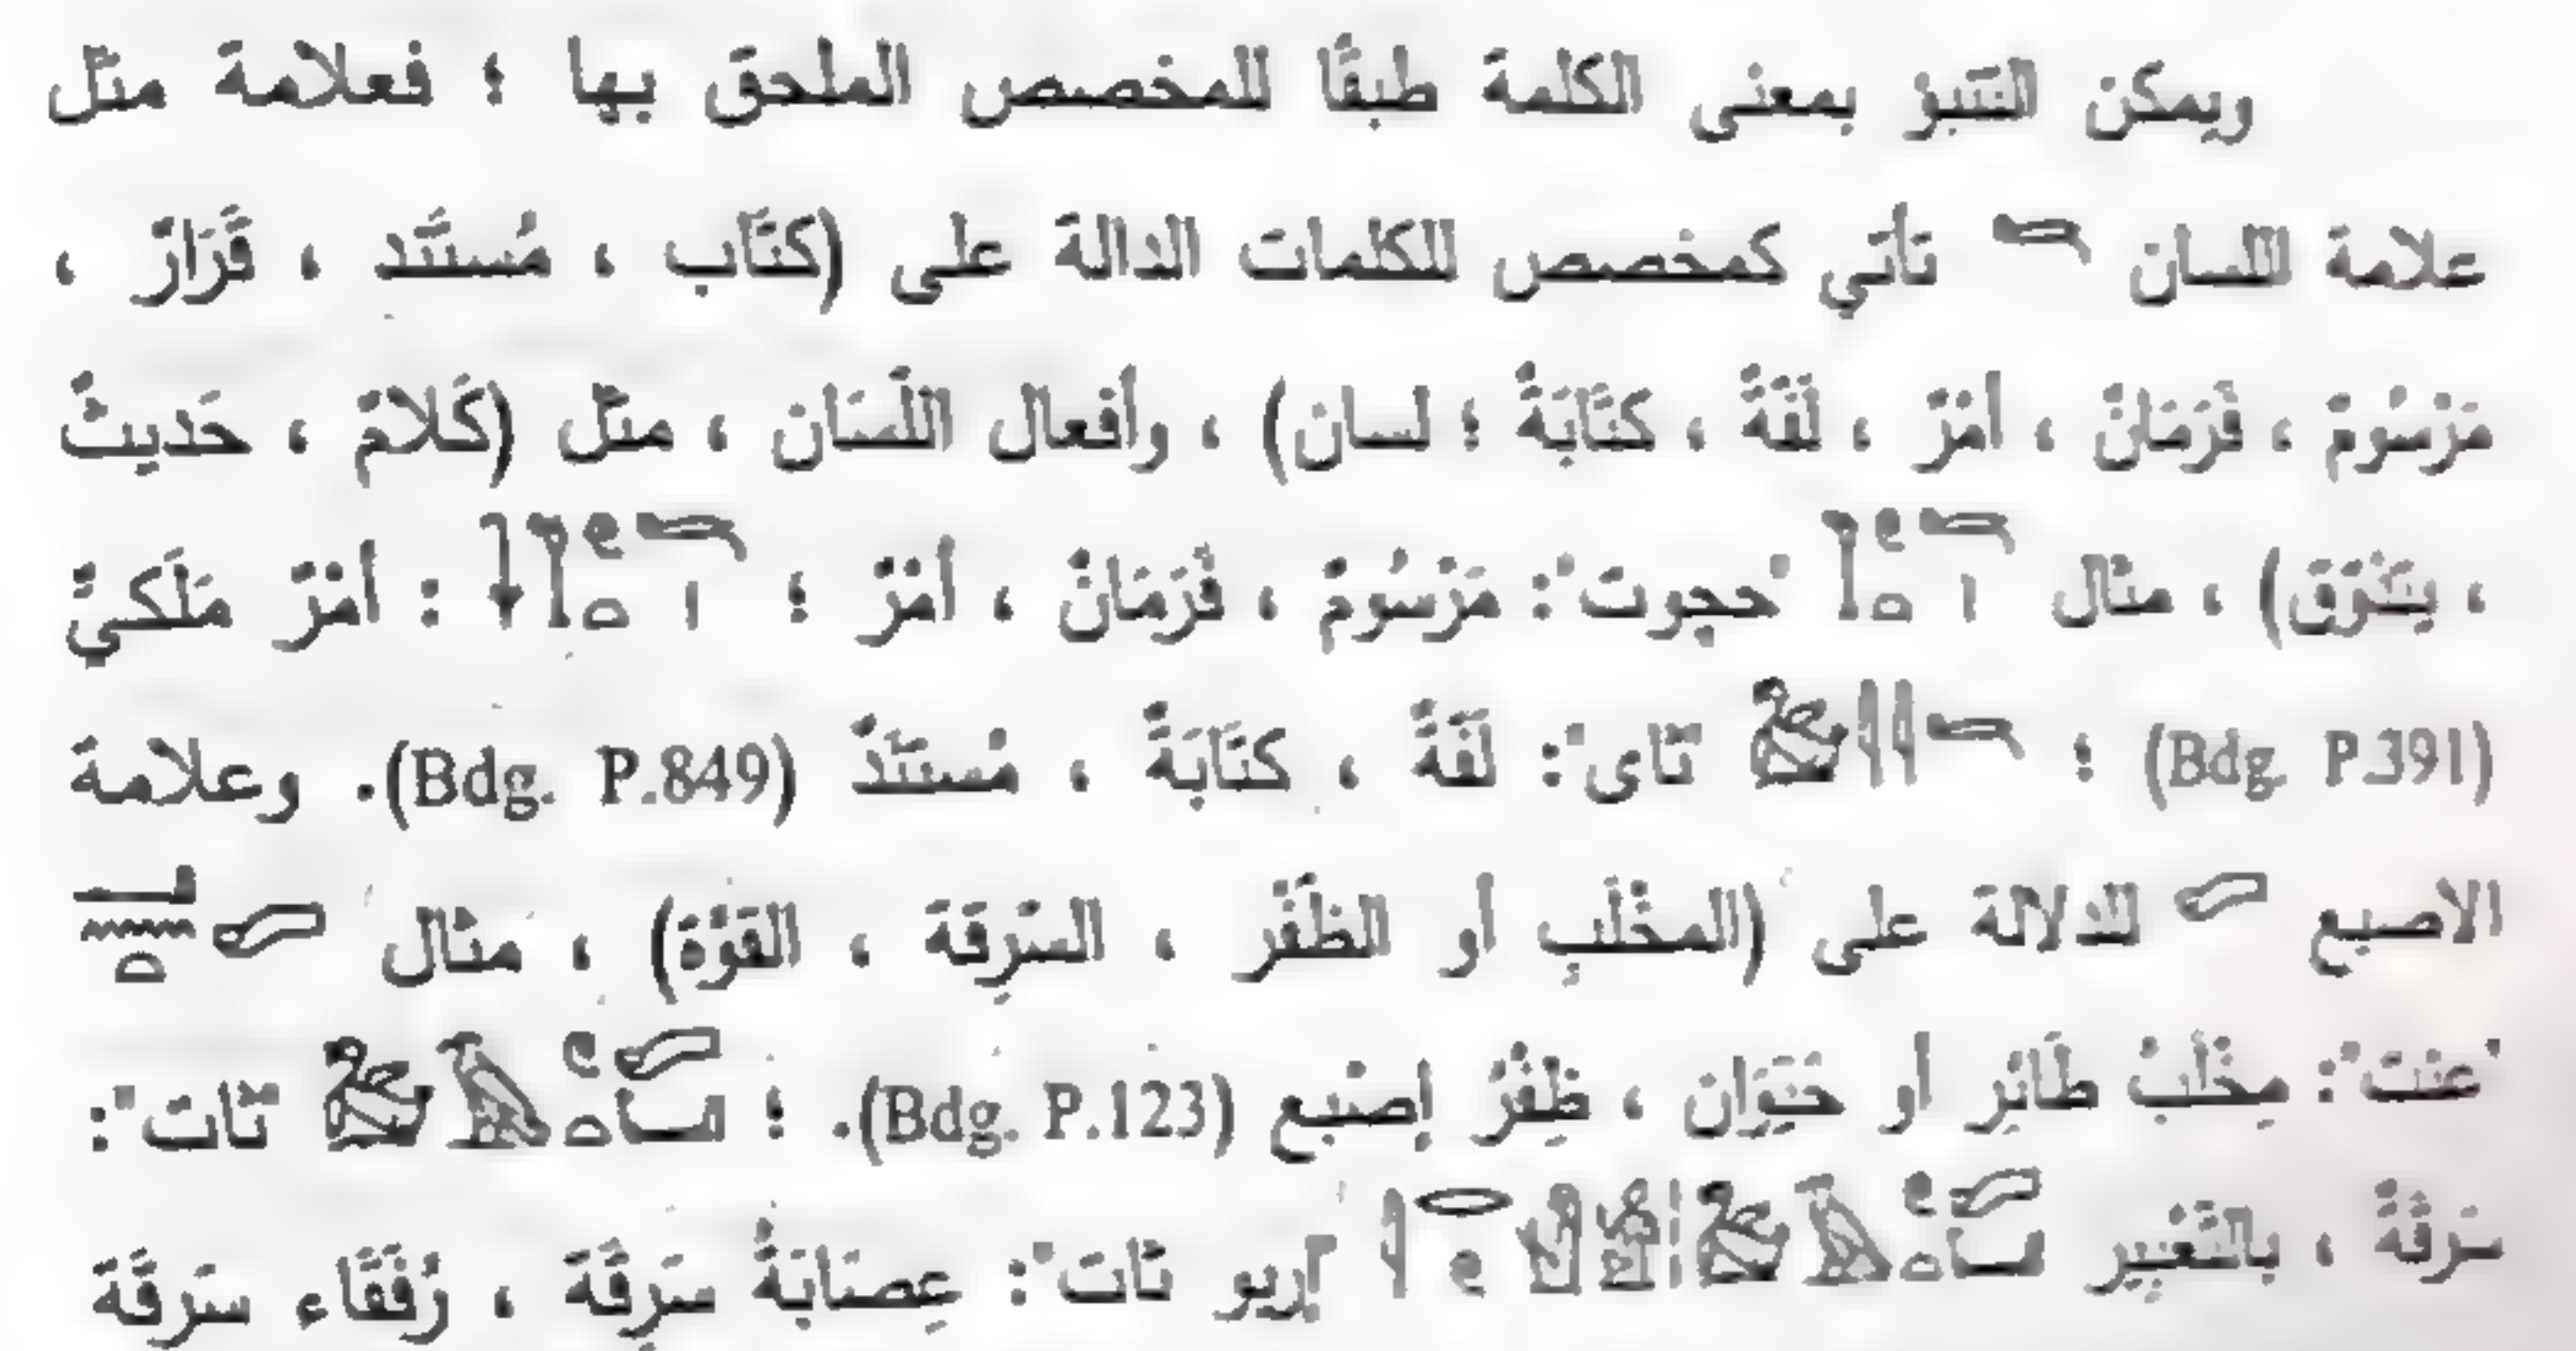 ويمكن التنبؤ بمعنى الكلمة طبقًا للمخصص الملحق بها ؛ فعلامة مثل
علامة اللسان 𓄓 تأتي كمخصص للكلمات الدالة على (كتَاب ، مُستَنَد ، قَرَارٌ ،
مَرْسُومٌ ، فَرَمَانٌ ، أمْرٌ ، لَفَّةٌ ، كتَابَةٌ ؛ لسان) ، وأفعال اللِّسَان ، مثل (كَلامٌ ، حَديثٌ
، يتَذَوَّق) ، مثال "حجوت": مَرْسُومٌ ، فَرَمَانٌ ، أمْرٌ ؛ : أمْرٌ مَلَكيٌّ
(Bdg. P.391) ؛ "ثاى": لَفَّةٌ ، كتَابَةٌ ، مُستَنَدٌ (Bdg. P.849). وعلامة
الاصبع للدلالة على (المخْلَبِ أو الظفْر ، السَّرِقة ، القوَّة) ، مثال
"عنت": مِخْلَبُ طَائرِ أو حَيَوَان ، ظِفْرُ إصْبع (Bdg. P.123). ؛ "ثات":
سَرِقَةٌ ، بالتَّعْبِير "إريو ثات": عِصَابَةُ سَرِقَة ، رُفَقَاء سَرِقَة